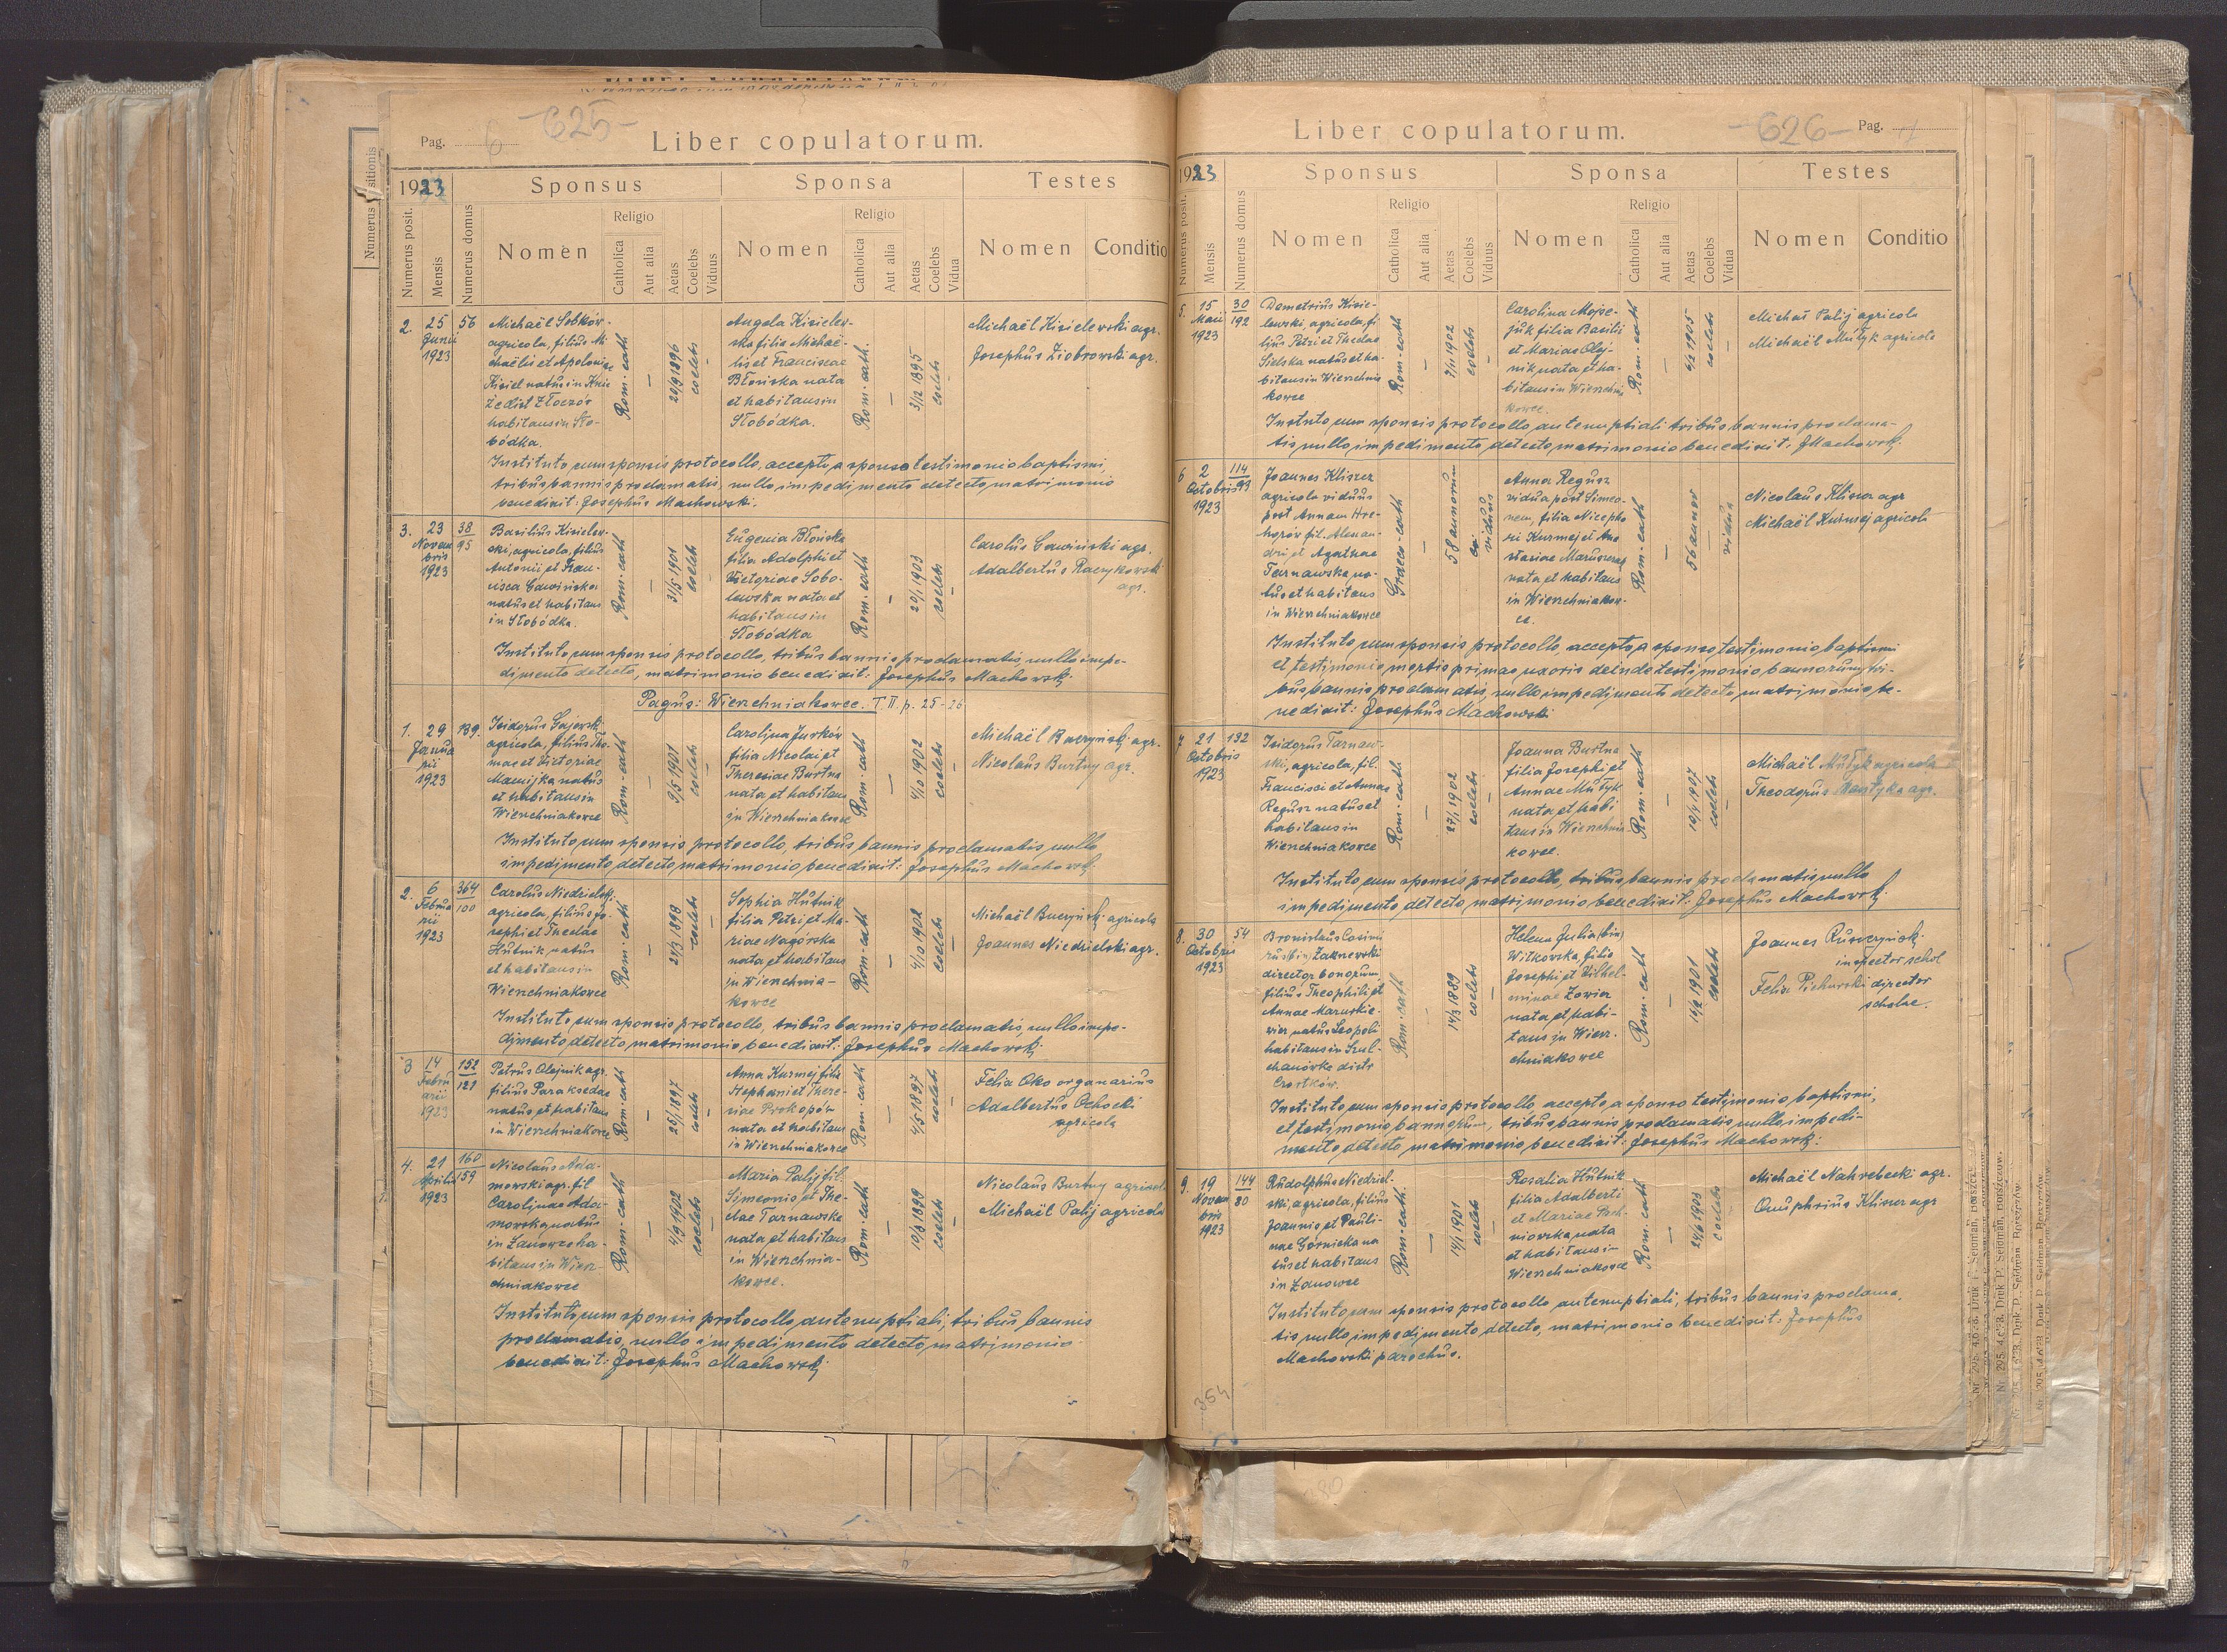 Pag. 6 -625-
Liber copulatorum.
1923 Sponsus Sponsa Testes
Numerus posit. Mensis Numerus domus Nomen Religio Catholica Aut alia Aetas Coelebs Viduus Nomen Religio Catholica Aut alia Aetas Coelebs Vidua Nomen Conditio
2. 25 Junii 1923 56
Michaël Sobków
agricola, filius Mi
chaëlis et Apoloniae
Kisiel natus in Knia
że dist Złoczów
habitans in Sło-
bódka.
Rom. cath — 20/9 1896 coelebs —
Angela Kisielew-
ska filia Michaë-
lis et Franciscae
Błońska nata
et habitans in
Słobódka.
Rom. cath. — 3/12 1895 coelebs —
Michaël Kisielewski agr.
Josephus Ziobrowski agr.
Instituto cum sponsis protocollo, accepto a sponso testimonio baptismi,
tribus bannis proclamatis, nullo impedimento detecto matrimonio
benedixit: Josephus Machowski.
3. 23 Novem bris 1923 38/95
Basilius Kisielew-
ski, agricola, filius
Antonii et Fran-
cisca Gawińska
natus et habitans
in Słobódka.
Rom. cath — 31/5 1901 coelebs —
Eugenia Błońska
filia Adolphi et
Victoriae Sobo-
lewska nata et
habitans in
Słobódka
Rom. cath — 20/1 1903 coelebs —
Carolus Gawiński agr.
Adalbertus Raczykowski
agr.
Instituto cum sponsis protocollo, tribus bannis proclamatis, nullo impe-
dimento detecto, matrimonio benedixit: Josephus Machowski.
Pagus: Wierzchniakowce. T II. p. 25-26
1. 29 Janua rii 1923 139.
Isidorus Gajewski
agricola, filius Tho-
mae et Victoriae
Maciijka natus
et habitans in
Wierzchniakowce
Rom. cath — 9/5 1901 coelebs —
Carolina Jurków
filia Nicolai et
Theresiae Burtna
nata et habitans
in Wierzchniakowce
Rom. cath — 4/10 1902 coelebs —
Michaël Buczyński agr.
Nicolaus Burtny agr.
Instituto cum sponsis protocollo, tribus bannis proclamatis, nullo
impedimento detecto matrimonio benedixit: Josephus Machowski.
2. 6 Februa rii 1923 364/100
Carolus Niedzielski
agricola, filius Jo-
sephi et Theclae
Hutnik natus
et habitans in
Wierzchniakowce
Rom. cath — 27/3 1898 coelebs —
Sophia Hutnik
filia Petri et Ma-
riae Nagórska
nata et habitans
in Wierzchnia-
kowce
Rom. cath — 4/10 1902 coelebs —
Michaël Buczyński agricola
Joannes Niedzielski agr.
Instituto cum sponsis protocollo, tribus bannis proclamatis, nullo impe-
dimento detecto matrimonio benedixit: Josephus Machowski
3 14 Febru arii 1923 152/121
Petrus Olejnik agr.
filius Paraksedae
natus et habitans
in Wierzchniakowce
Rom. cath — 25/1 1897 coelebs —
Anna Kurmej filia
Stephani et There-
siae Prokopów
nata et habitans
in Wierzchniakowce
Rom. cath — 2/5 1897 coelebs —
Felix Oko organarius
Adalbertus Ochocki
agricola
4. 21 Aprilis 1923 160/159
Nicolaus Ada-
mowski agr. fil
Carolinae Ada-
mowska natus
in Łanowce ha-
bitans in Wierz-
chniakowce
Rom. cath — 4/9 1902 coelebs —
Maria Palij fil.
Simeonis et The-
clae Tarnawska
nata et habitans
in Wierzchnia-
kowce.
Rom. cath — 10/8 1899 coelebs —
Nicolaus Burtny agricola
Michaël Palij agricola
Instituto cum sponsis protocollo antenuptiali, tribus bannis
proclamatis, nullo impedimento detecto, matrimonio
benedixit: Josephus Machowski
Liber copulatorum.
-626- Pag. 7
1923 Sponsus Sponsa Testes
Numerus posit. Mensis Numerus domus Nomen Religio Catholica Aut alia Aetas Coelebs Viduus Nomen Religio Catholica Aut alia Aetas Coelebs Vidua Nomen Conditio
5. 15 Maii 1923 30/192
Demetrius Kisie-
lewski, agricola, fi
lius Petri et Theclae
Sielska natus et ha-
bitans in Wierzchnia
kowce
Rom. cath — 7/11 1902 coelebs —
Carolina Mojse-
juk filia Basilii
et Mariae Olej-
nik nata et ha-
bitans in Wierzchnia
kowce.
Rom. cath — 6/2 1905 coelebs —
Michał Palij agricola
Michaël Mułyk agricola
Instituto cum sponsis protocollo antenuptiali tribus bannis proclama-
tis, nullo impedimento detecto, matrimonio benedixit: J Machowski.
6 2 Octobris 1923 114/99
Joannes Kliszcz
agricola viduus
post Annam Hre-
horów fil. Alexan-
dri et Agathae
Tarnawska na-
tus et habitans
in Wierzchniakowce
Graeco-cath — 58 annorum viduus
Anna Regusz
vidua post Simeo-
nem, filia Nicepho
ri Kurmej et Ana
stasiae
nata et habitans
in Wierzchniakow-
ce.
Rom. cath — 56 annor — vidua
Nicolaus Kliszcz agr
Michaël Kurmej agricola
Instituto cum sponsis protocollo, accepto a sponso testimonio baptismi
et testimonio mortis primae uxoris deinde testimonio bannorum, tri-
bus bannis proclamatis, nullo impedimento detecto matrimonio be-
nedixit: Josephus Machowski
7 21 Octobris 1923 132
Isidorus Tarnaw-
ski, agricola, fil.
Francisci et Annae
Regusz natus et
habitans in
Wierzchniakowce
Rom. cath — 27/1 1902 coelebs —
Joanna Burtna
filia Josephi et
Annae Mułyk
nata et habi
tans in Wierzchnia-
kowce.
Rom. cath — 10/4 1907 coelebs —
Michaël Mułyk agricola
Theodorus agr.
Instituto cum sponsis protocollo, tribus bannis proclamatis, nullo
impedimento detecto, matrimonio benedixit: Josephus Machowski
8. 30 Octobris 1923 54
Bronislaus Casimi
rus (bin) Zakrzewski
director bonorum,
filius Theophili et
Annae Maruskie-
wicz natus Leopoli
habitans in Szul-
chanówka distr
Czortków.
Rom. cath — 14/3 1889 coelebs —
Helena Julia (bin)
Witkowska, filia
Josephi et Wilhel-
minae Zowier
nata et habi-
tans in Wierz-
chniakowce
Rom. cath — 16/2 1901 coelebs —
Joannes Ruszczyński
inspector schol
Felix Piekarski director
scholae.
Instituto cum sponsis protocollo accepto a sponso testimonio baptismi,
et testimonio bannorum, tribus bannis proclamatis, nullo impedi-
mento detecto matrimonio benedixit: Josephus Machowski:
9. 19 Novem bris 1923 144/80
Rudolphus Niedziel-
ski, agricola, filius
Joannis et Pauli-
nae Górnicka na
tus et habitans
in Łanowce
Rom. cath. — 14/1 1901 coelebs —
Rosalia Hutnik
filia Adalberti
et Mariae
nata
et habitans in
Wierzchniakowce
Rom. cath — 24/6 1903 coelebs
Michaël Nahrebecki agr.
Onuphrius Kliszcz agr
Instituto cum sponsis protocollo antenuptiali, tribus bannis proclama-
tis nullo impedimento detecto, matrimonio benedixit: Josephus
Machowski parochus.
354